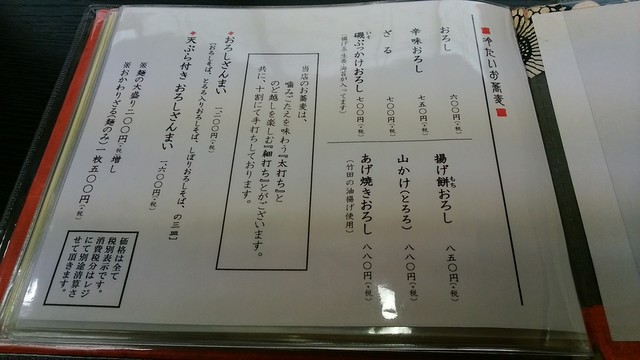 冷たいお蕎麦
おろし 六〇〇円(+税)
辛味おろし 七五〇円(+税)
ざる 七〇〇円(+税)
磯ぶっかけおろし 七〇〇円(+税)
いそ
揚げ餅おろし 八五〇円(+税)
もち
山かけ(とろろ) 八八〇円(+税)
あげ焼きおろし 八八〇円(+税)
(竹田の油揚げ使用)
当店のお蕎麦は、
噛みごたえを味わう『太打ち』と
のど越しを楽しむ『細打ち』とがございます。
共に、十割にて手打ちしております。
おろしざんまい 一二〇〇円(+税)
(おろしそば、とろろ入りおろしそば、しぼりおろしそば、の三皿)
天ぷら付き おろしざんまい 一、六〇〇円(+税)
※麺の大盛り二〇〇円(+税)増し
※おかわりざる(麺のみ)一枚五〇〇円(+税)
価格は全て
税別表示です。
消費税分はレジ
にて別途清算さ
せて頂きます。